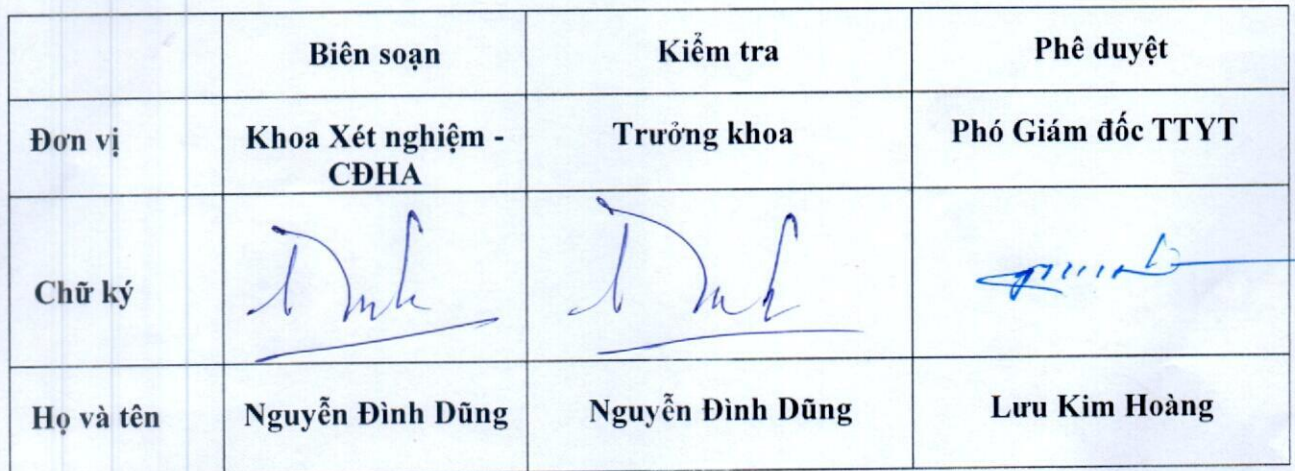 Biên soạn Kiểm tra Phê duyệt
Đơn vị Khoa Xét nghiệm - Trưởng khoa Phó Giám đốc TTYT
CĐHA
Chữ ký
Họ và tên Nguyễn Đình Dũng Nguyễn Đình Dũng Lưu Kim Hoàng